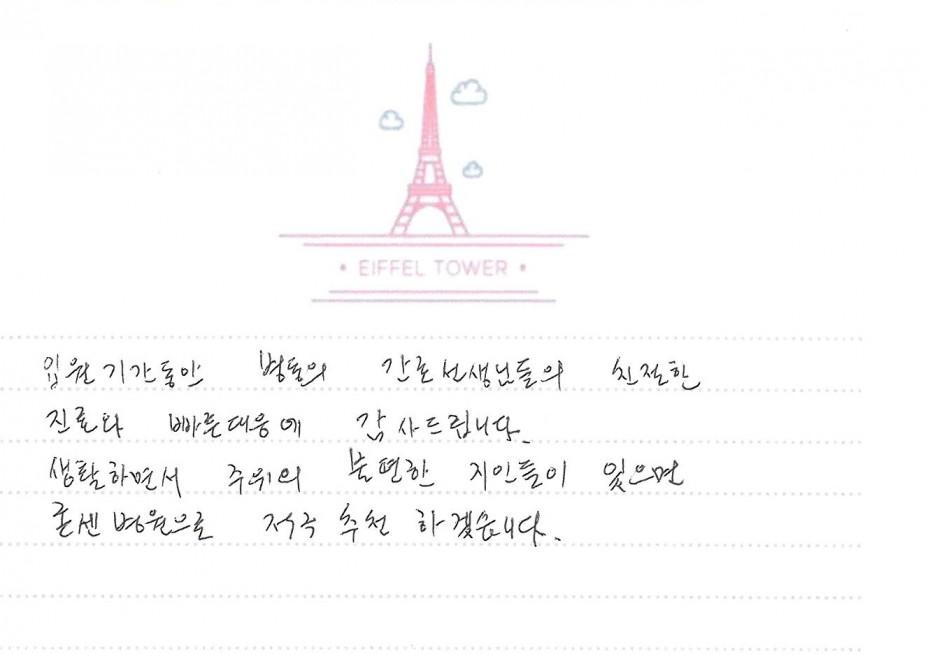 • EIFFEL TOWER •
입원기간동안 병동의 간호선생님들의 친절한
진료와 빠른대응에 감사드립니다.
생활하면서 주위의 불편한 지인들이 있으면
본센병원으로 적극 추천 하겠습니다.